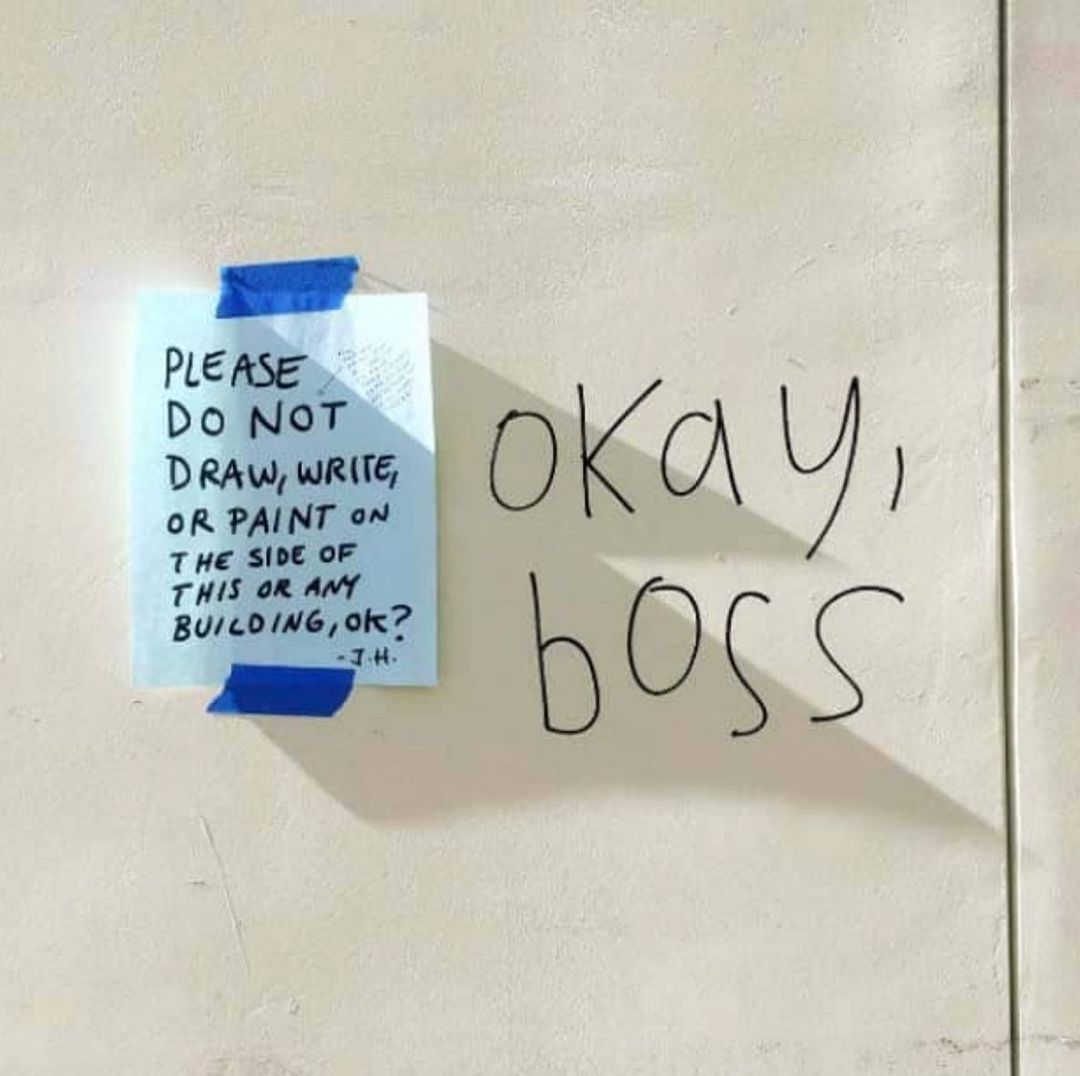 PLEASE
DO NOT
DRAW, WRITE,
OR PAINT ON
THE SIDE OF
THIS OR ANY
BUILDING, OK?
-J.H.
okay,
boss